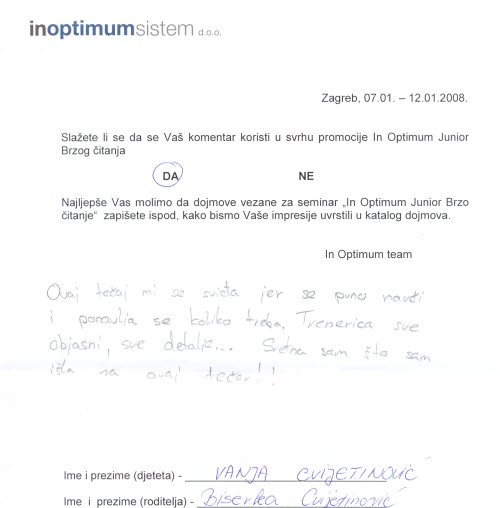 inoptimumsistem d.o.o.
Zagreb, 07.01. – 12.01.2008.
Slažete li se da se Vaš komentar koristi u svrhu promocije In Optimum Junior
Brzog čitanja
DA NE
Najljepše Vas molimo da dojmove vezane za seminar „In Optimum Junior Brzo
čitanje“ zapišete ispod, kako bismo Vaše impresije uvrstili u katalog dojmova.
In Optimum team
Ovaj tečaj mi se sviđa jer se puno nauči
i ponavlja se koliko treba. Trenerica sve
objasni, sve detalje... Sretna sam što sam
išla na ovaj tečaj!!
Ime i prezime (djeteta) - VANJA CVIJETINOVIĆ
Ime i prezime (roditelja) - Biserka Cvijetinović